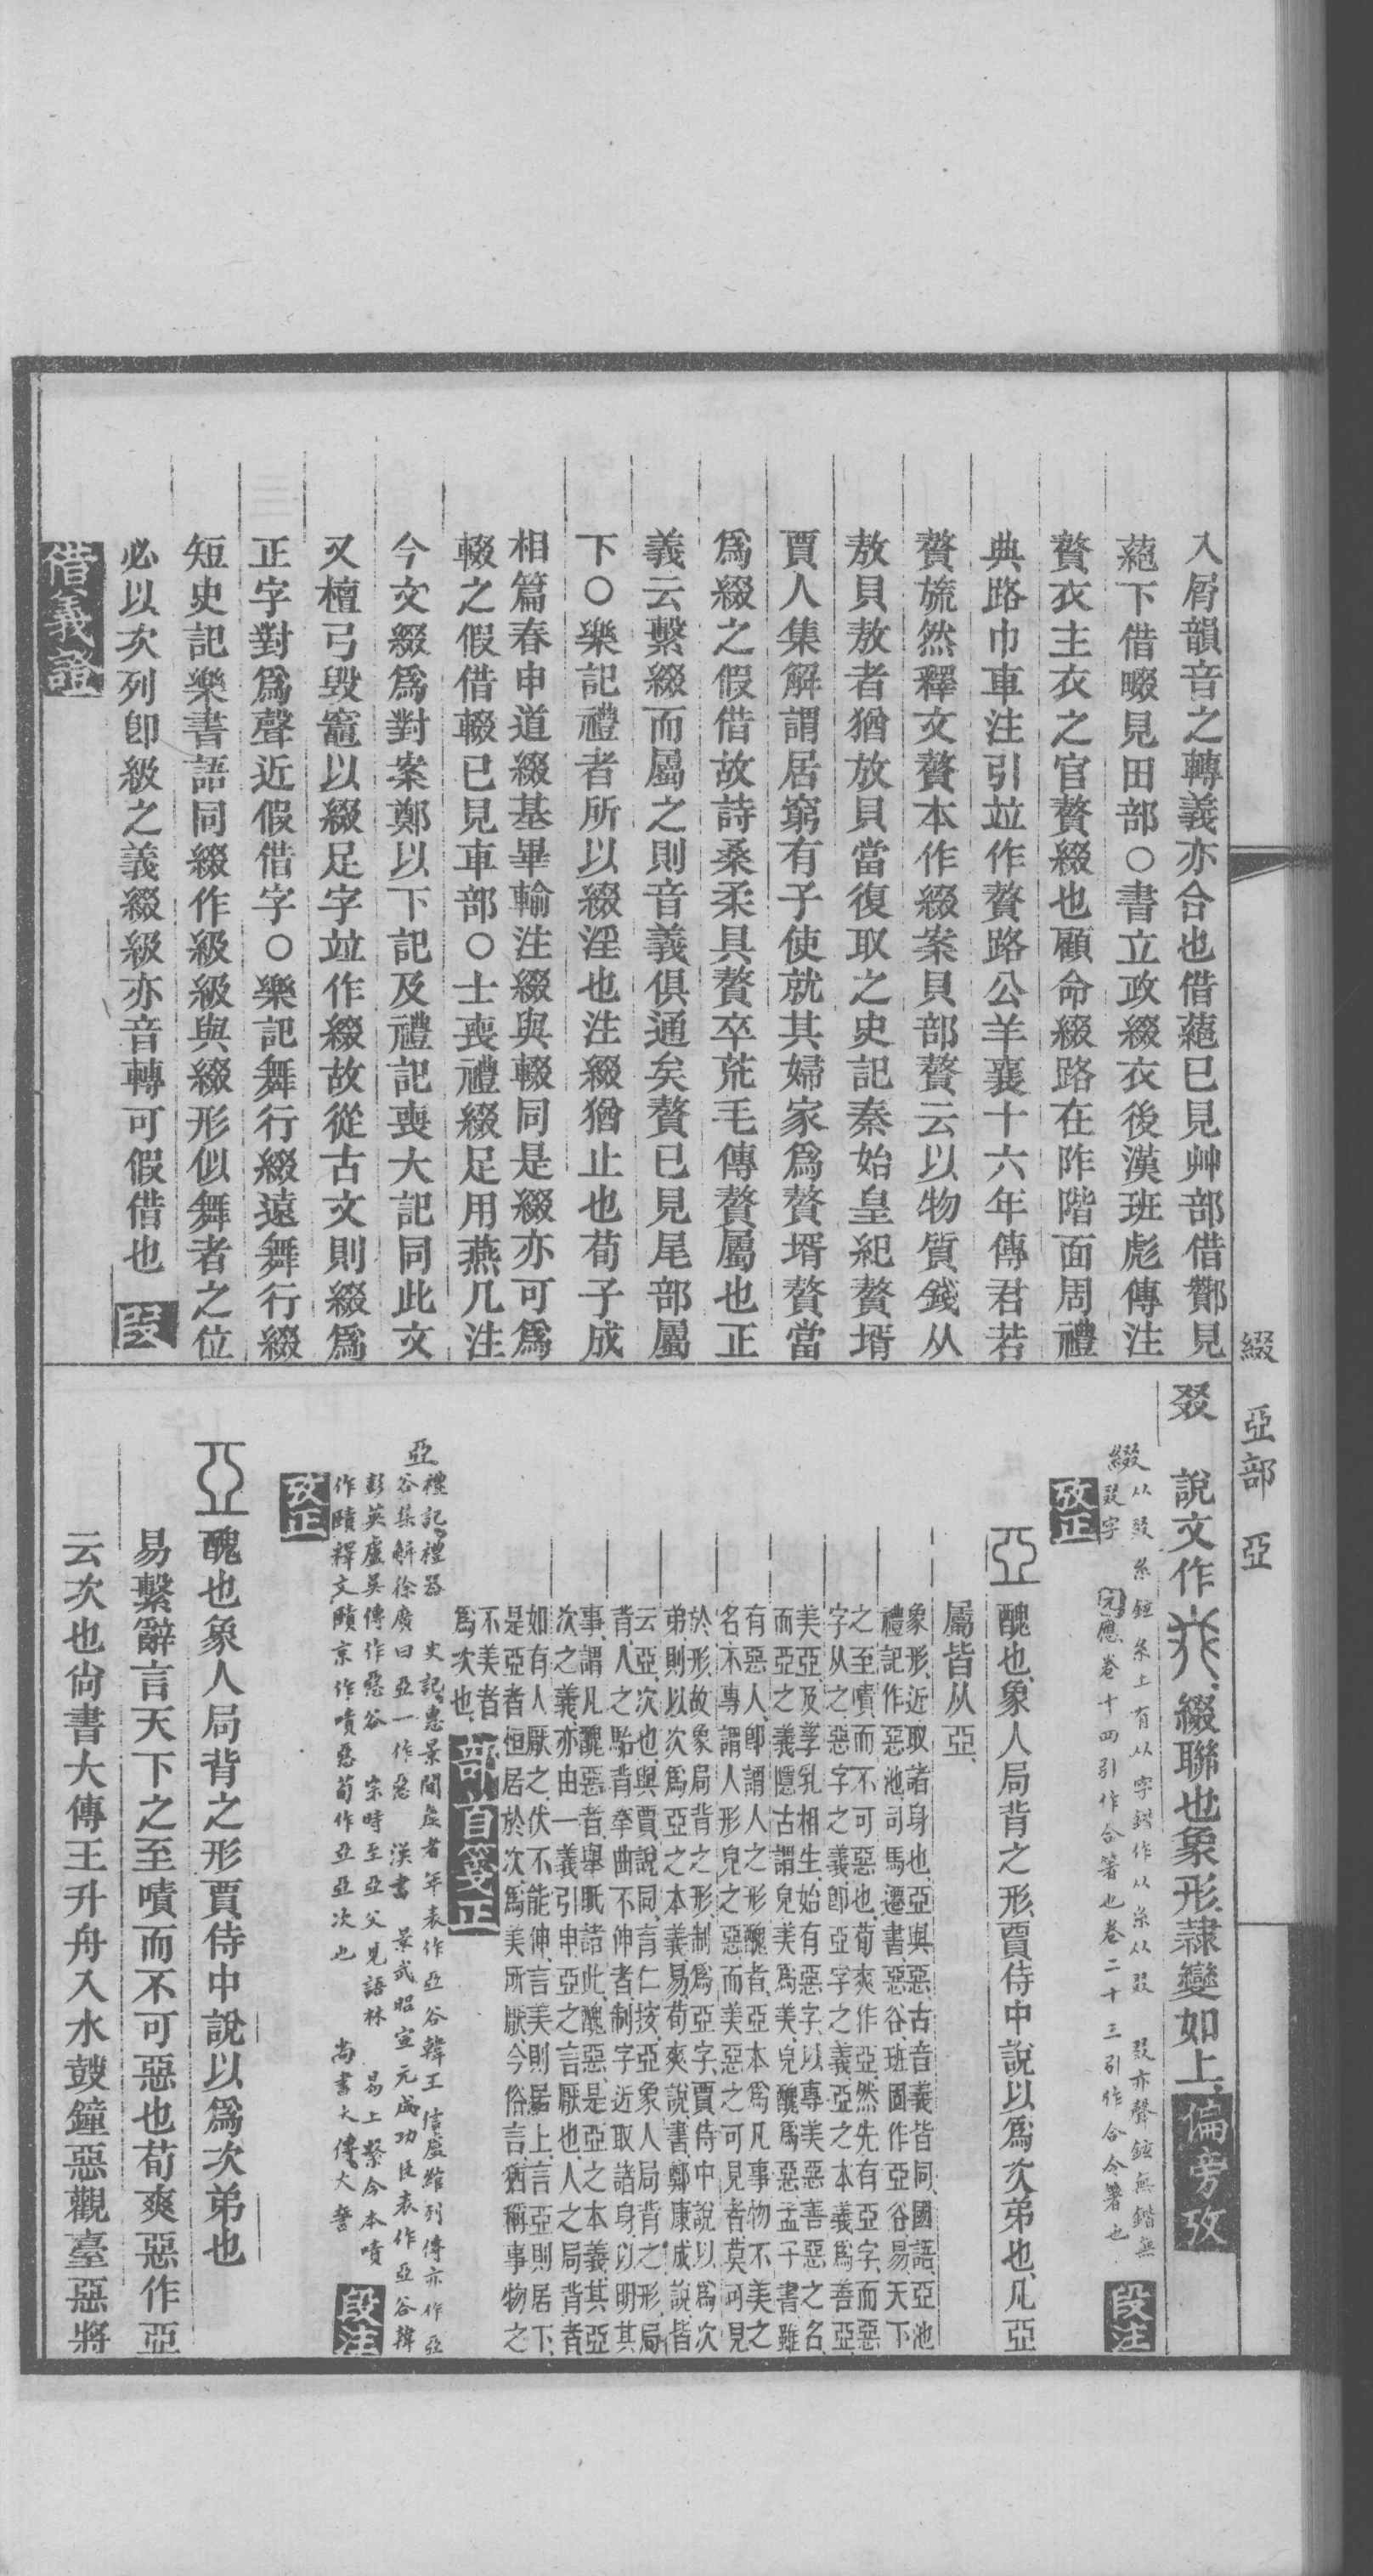 綴 亞部 亞
入屑韻音之轉義亦合也借蕝已見艸部借酇見
蕝下借畷見田部○書立政綴衣後漢班彪傳注
贅衣主衣之官贅綴也顧命綴路在阼階面周禮
典路巾車注引竝作贅路公羊襄十六年傳君若
贅旒然釋文贅本作綴案貝部贅云以物質錢从
敖貝敖者猶放貝當復取之史記秦始皇紀贅壻
賈人集解謂居窮有子使就其婦家爲贅壻贅當
爲綴之假借故詩桑柔具贅卒荒毛傳贅屬也正
義云繫綴而屬之則音義俱通矣贅已見尾部屬
下○樂記禮者所以綴淫也注綴猶止也荀子成
相篇春申道綴基畢輸注綴與輟同是綴亦可爲
輟之假借輟已見車部○士喪禮綴足用燕几注
今文綴爲對案鄭以下記及禮記喪大記同此文
又檀弓毀竈以綴足字竝作綴故從古文則綴爲
正字對爲聲近假借字○樂記舞行綴遠舞行綴
短史記樂書語同綴作級級與綴形似舞者之位
必以次列卽級之義綴級亦音轉可假借也 叕
借義證
叕 說文作綴聯也象形隸變如上 偏旁攷
綴从叕糸鉉糸上有从字鍇作从糸从叕 叕亦聲鉉無鍇無
叕字 元應卷十四引作合箸也卷二十三引作合令箸也 段注
攷正
亞 醜也象人局背之形賈侍中說以爲次弟也凡亞
屬皆从亞
象形近取諸身也亞與惡古音義皆同國語亞池
禮記作惡池司馬遷書惡谷班固作亞谷易天下
之至嘖而不可惡也荀爽作亞然先有亞字而惡
字从之惡字之義卽亞字之義亞之本義爲善亞
美亞及孳乳相生始有惡字以專美惡善惡之名
而亞之義隱古謂皃美爲美皃醜爲惡孟子書雖
有惡人卽謂人之形醜者亞本爲凡事物不美之
名不專謂人形皃之惡而美惡之可見者莫可見
於形故象局背之形制爲亞字賈侍中說以爲次
弟則以次爲亞之本義易荀爽說書鄭康成說皆
云亞次也與賈說同言仁按亞象人局背之形局
背人之駘背拳曲不伸者制字近取諸身以明其
事謂凡醜惡者舉眂諸此醜惡是亞之本義其亞
次之義亦由一義引申亞之言厭也人之局背者
如有人厭之伏不能伸言美則居上言亞則居下
是亞者恒居於次爲美所厭今俗言猶稱事物之
不美者
爲次也 部首箋正
亞 禮記禮器 史記惠景閒矦者年表作亞谷韓王信盧綰列傳亦作亞
谷集解徐廣曰亞一作惡 漢書景武昭宣元成功臣表作亞谷韓
彭英盧吳傳作惡谷 宗時至亞父見語林 易上繫今本嘖
作賾釋文賾京作嘖惡荀作亞亞次也 尚書大傳大誓 段注
攷正
亞 醜也象人局背之形賈侍中說以爲次弟也
易繫辭言天下之至嘖而不可惡也荀爽惡作亞
云次也尙書大傳王升舟入水鼓鐘惡觀臺惡將